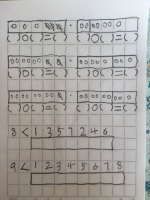 ( )○( )=( ) ( )○( )=( )
( )○( )=( ) ( )○( )=( )
( )○( )=( ) ( )○( )=( )
8 < 1 3 5 7 2 4 6
9 < 1 2 3 4 5 6 7 8